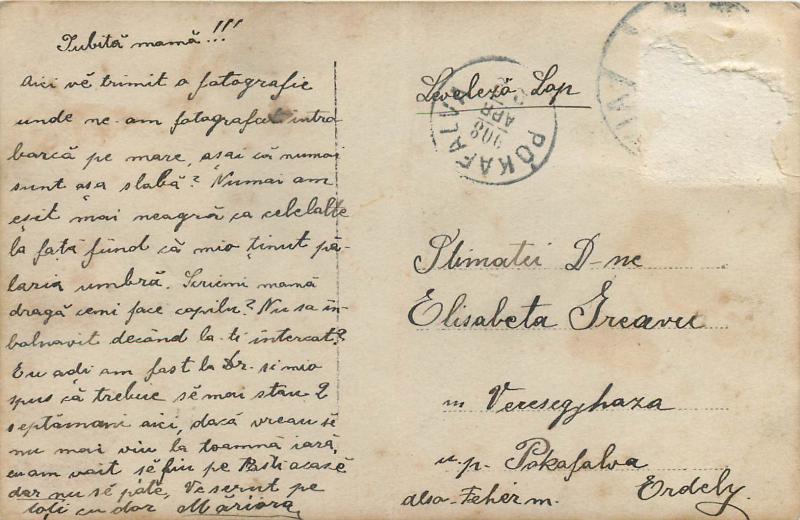 Iubită mamă!!!
Aici vĕ trimit o fatografie
unde ne-am fotografat intro
barcă pe mare, asai că numai
sunt asa slabă? Numai am
esit mai neagră ca celelalte
la fată fünd că mio tinut pă-
laria umbră. Scriemi mamă
dragă cemi face copilu? Nu sa în-
balnavit decând la-ti intercat?
Eu adi am fost la Dr. si mio
spus că trebue sĕ mai stau 2
septămani aici, dacă vreau sĕ
nu mai viu la toamnă iară,
eu am vait sĕ fiu pe Pasti acasĕ
dar nu sĕ pate, Ve serut pe
toti cu dor Măriora
Levelezö Lap
POKAFALVA
908 APR
Stimatei D-ne
Elisabeta Greavu
in Veresegyhaza
u.p. Pokafalva
alsa-Fehér m. Erdely.